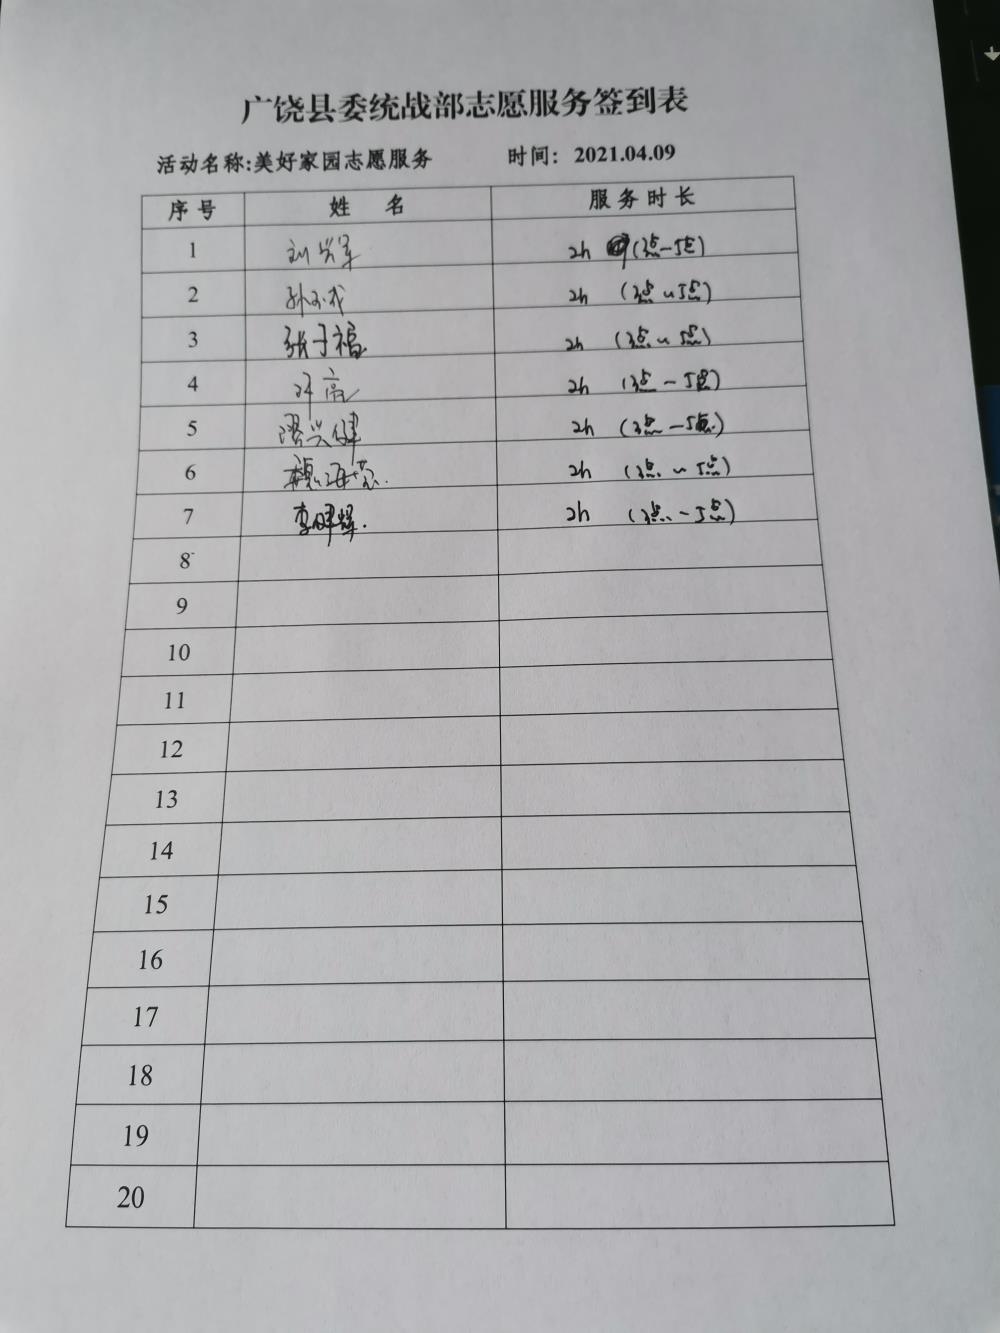 广饶县委统战部志愿服务签到表
活动名称:美好家园志愿服务 时间: 2021.04.09
序号 姓 名 服务时长
1 刘兴军 2h (3点-5点)
2 2h (3点~5点)
3 张子福 2h (3点~5点)
4 2h (3点-5点)
5 2h (3点-5点)
6 2h (3点~5点)
7 李晔辉 2h (3点-5点)
8
9
10
11
12
13
14
15
16
17
18
19
20